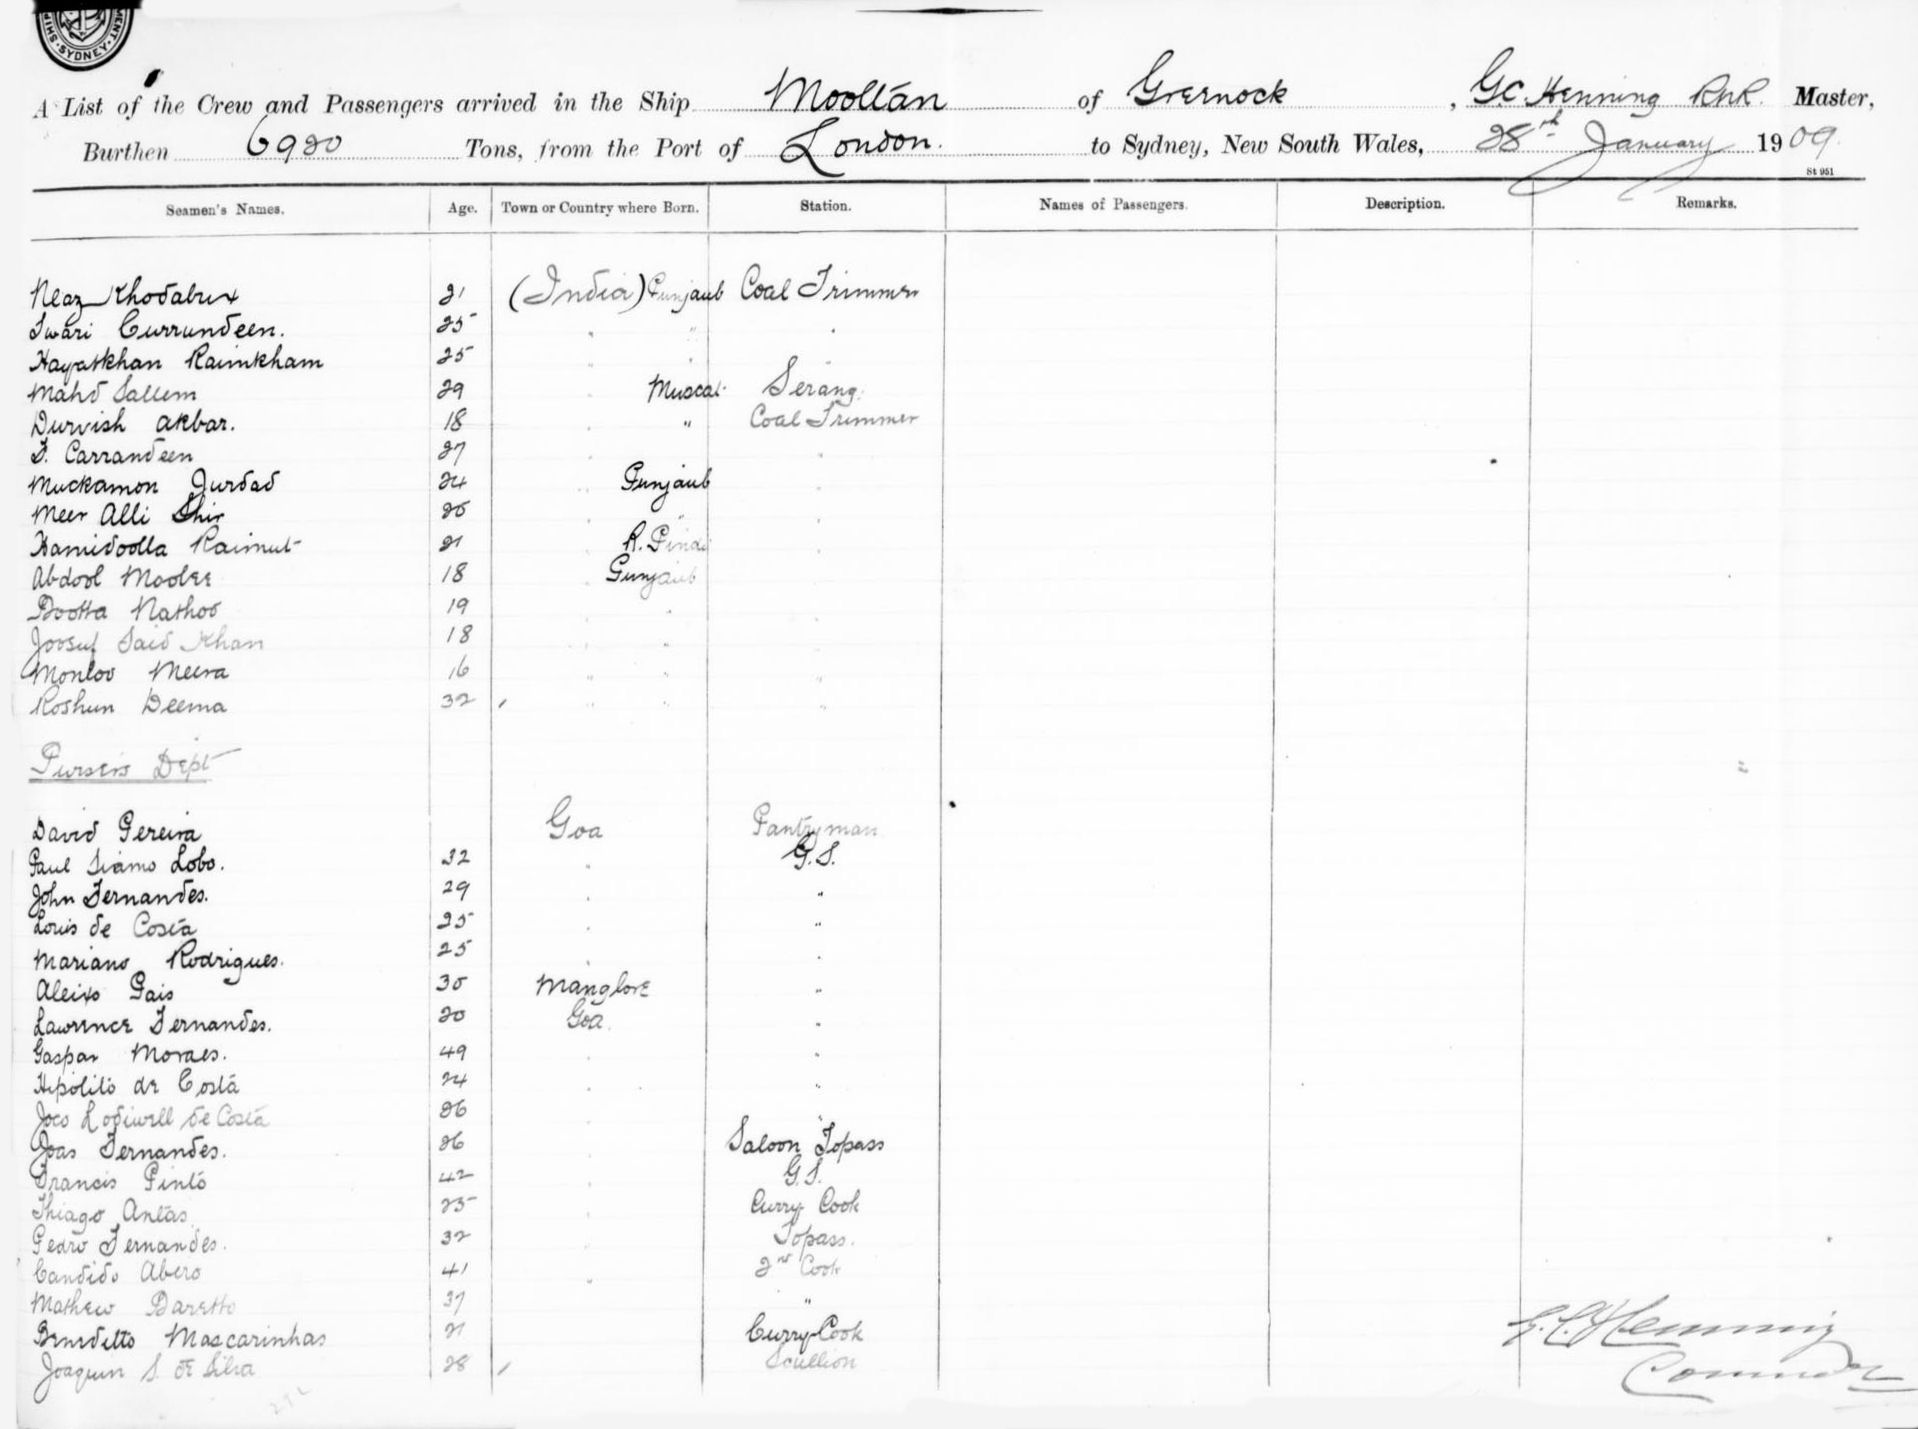 SHIP SYDNEY MENT
A List of the Crew and Passengers arrived in the Ship Mooltan of Greenock, G.C. Henning RNR. Master,
Burthen 6920 Tons, from the Port of London. to Sydney, New South Wales, 28th January 1909.
St 951
Seamen's Names. Age. Town or Country where Born. Station. Names of Passengers. Description. Remarks.
Neaz Khodabux 21 (India) Punjaub Coal Trimmer
Currundeen. 25 " " "
Hayatkhan Raimkham 25 " " "
Mahd Sallem 29 " Muscat Serang.
Durvish Akbar. 18 " " Coal Trimmer
F. Carrandeen 27 " "
Muckamon Jurdad 24 " Punjaub "
Meer Alli Shir 20 " " "
Hamidoolla Raimut 21 " R. Pindi "
Abdool Moolee 18 " Punjaub
Bootta Nathoo 19 "
Joosuf Said Khan 18 "
Meera 16 " " "
Roshun Deema 32 " " "
Pursers Dept
David Pereira Goa Pantryman
Paul Lobo. 32 " G.S.
John Fernandes. 29 " "
Louis de Costa 25 " "
Mariano Rodrigues. 25 " "
Aleixo Pais 30 Manglore "
Lawrence Fernandes. 20 Goa. "
Gaspar Moraes. 49 " "
Hipolito de Costa 24 " "
Joao de Costa 26 "
Joas Fernandes. 26 " Saloon Topass
Francis Pinto 42 " G.S.
Thiago Antas 25 " Curry Cook
Pedro Fernandes. 32 " Topass.
Candido Abero 41 " 2nd Cook
Mathew Baretto 37 "
Benedetto Mascarinhas 21 Curry Cook
Joaquim S. de Silva 28 Scullion
G.C. Henning